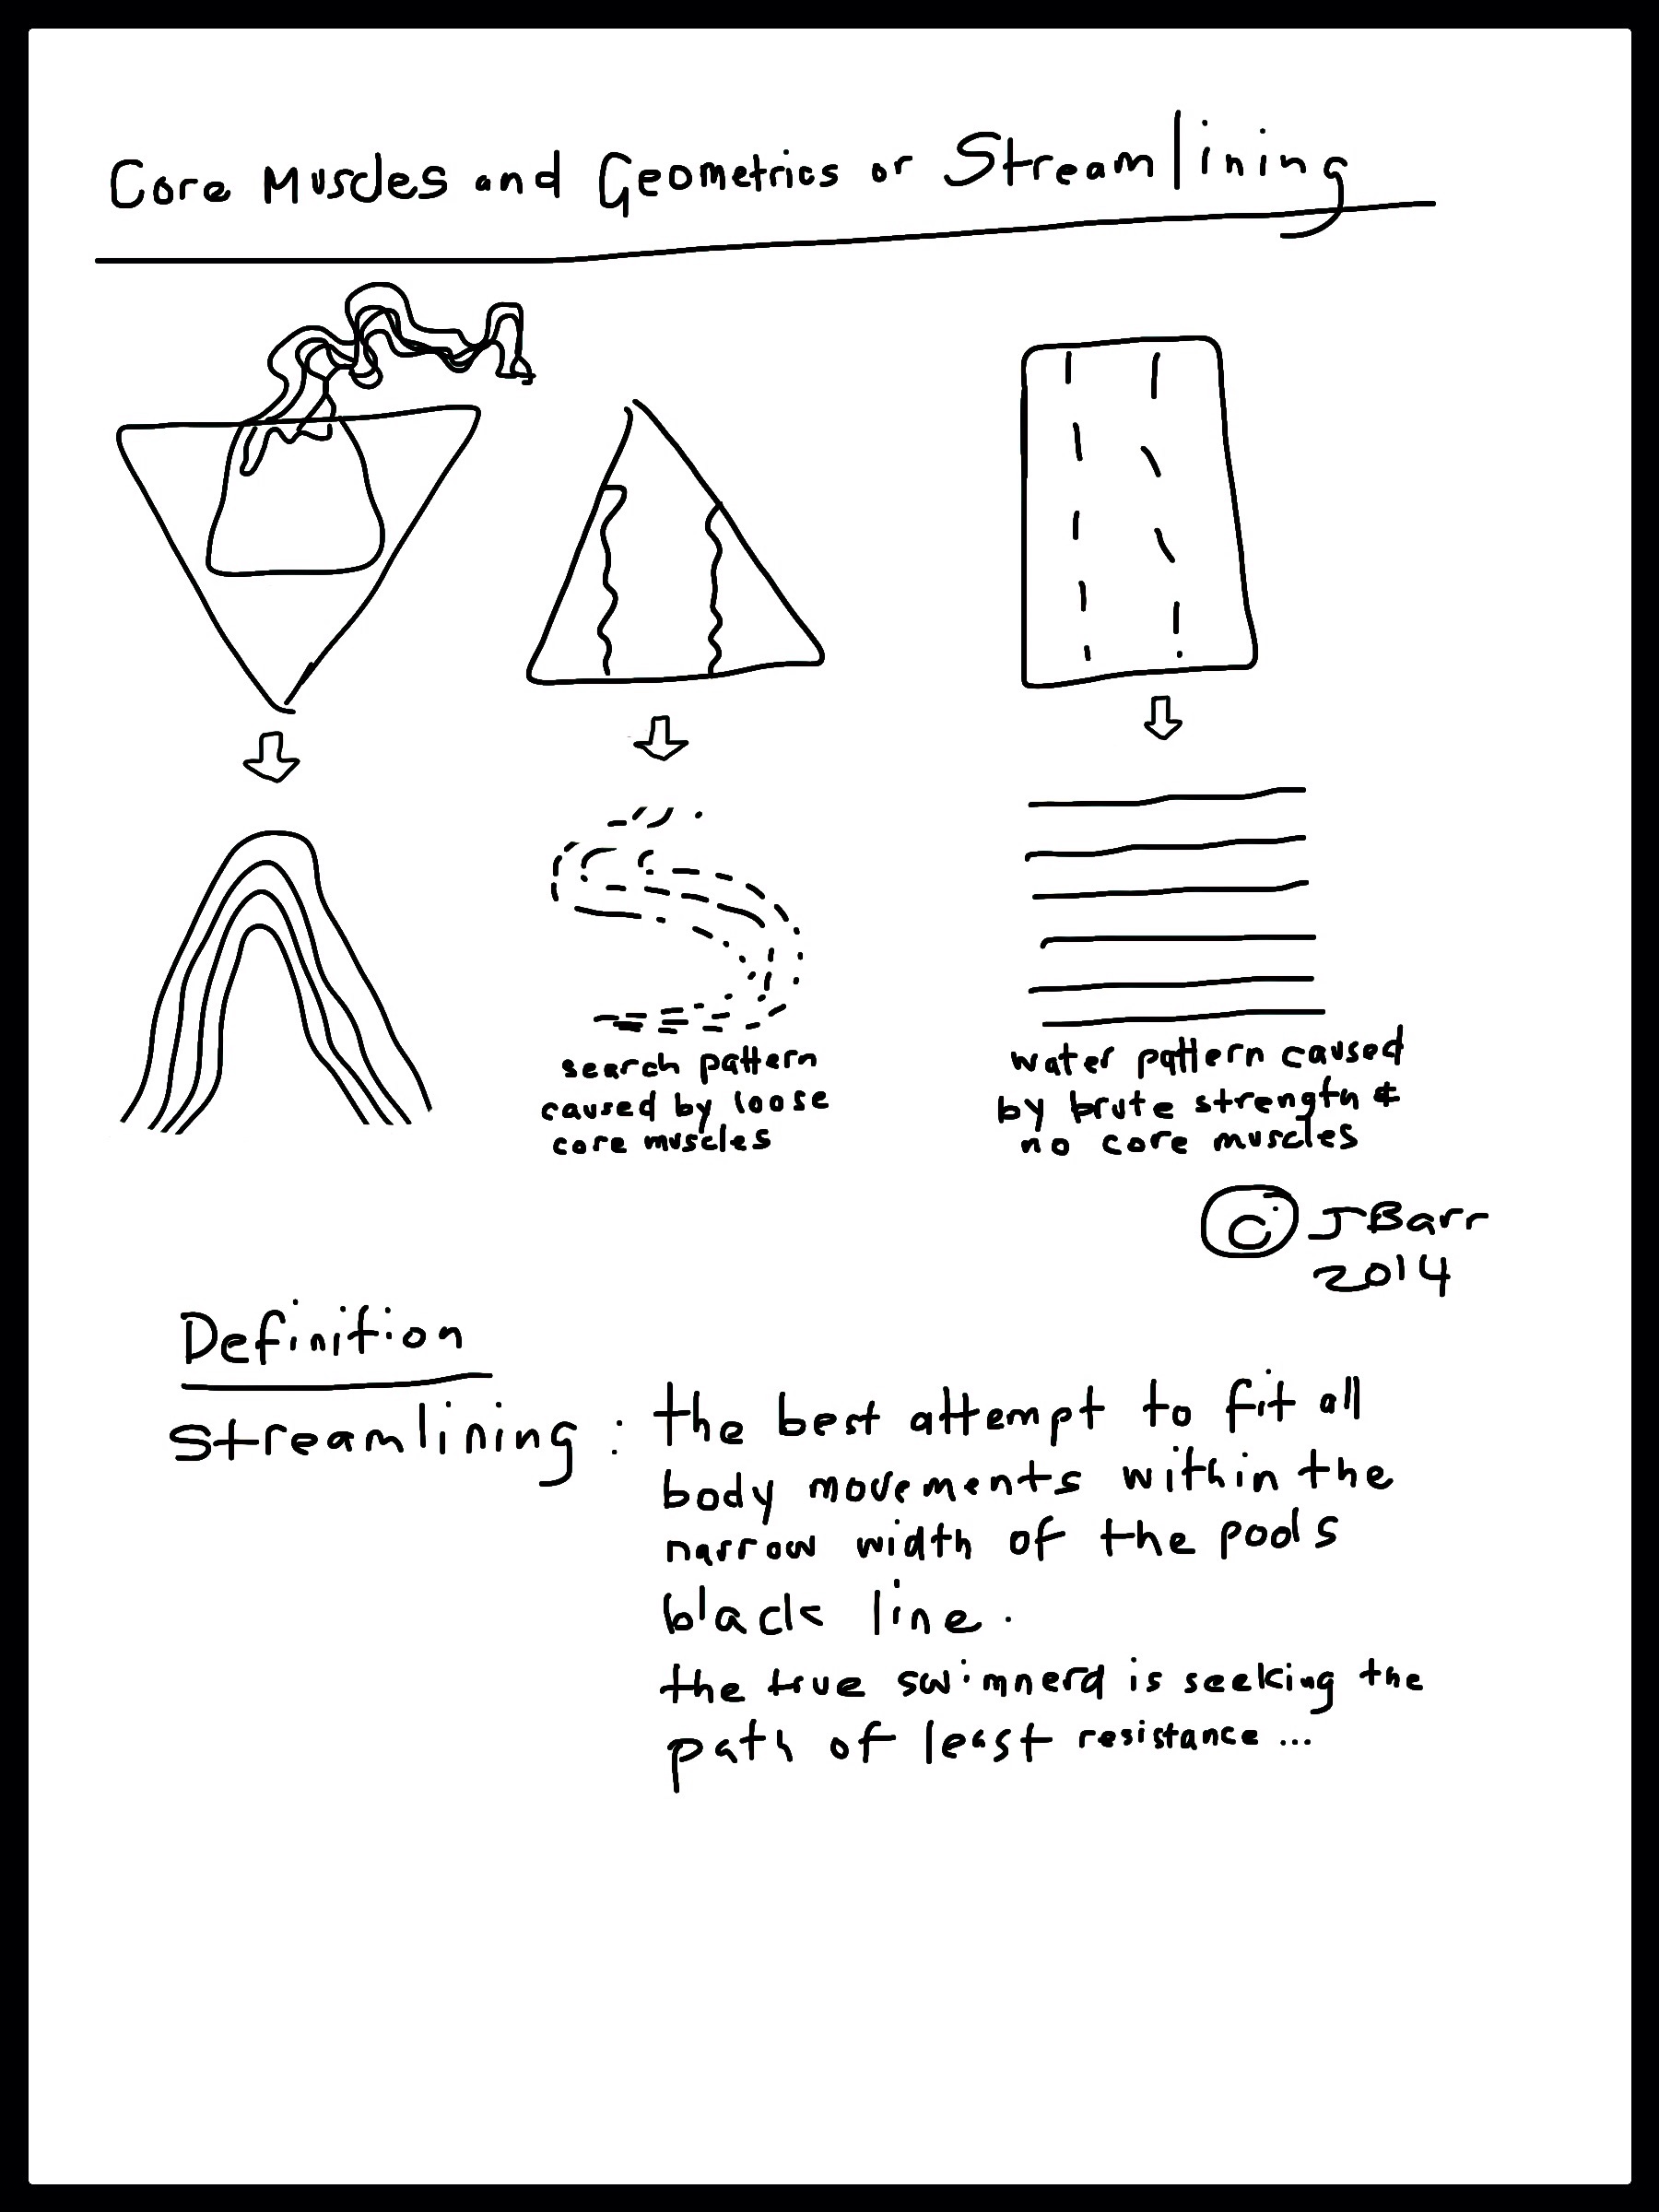 Core Muscles and Geometrics or Streamlining
search pattern
caused by loose
core muscles
water pattern caused
by brute strength &
no core muscles
© JBarr
2014
Definition
streamlining: the best attempt to fit all
body movements within the
narrow width of the pools
black line.
the true swimnerd is seeking the
path of least resistance...